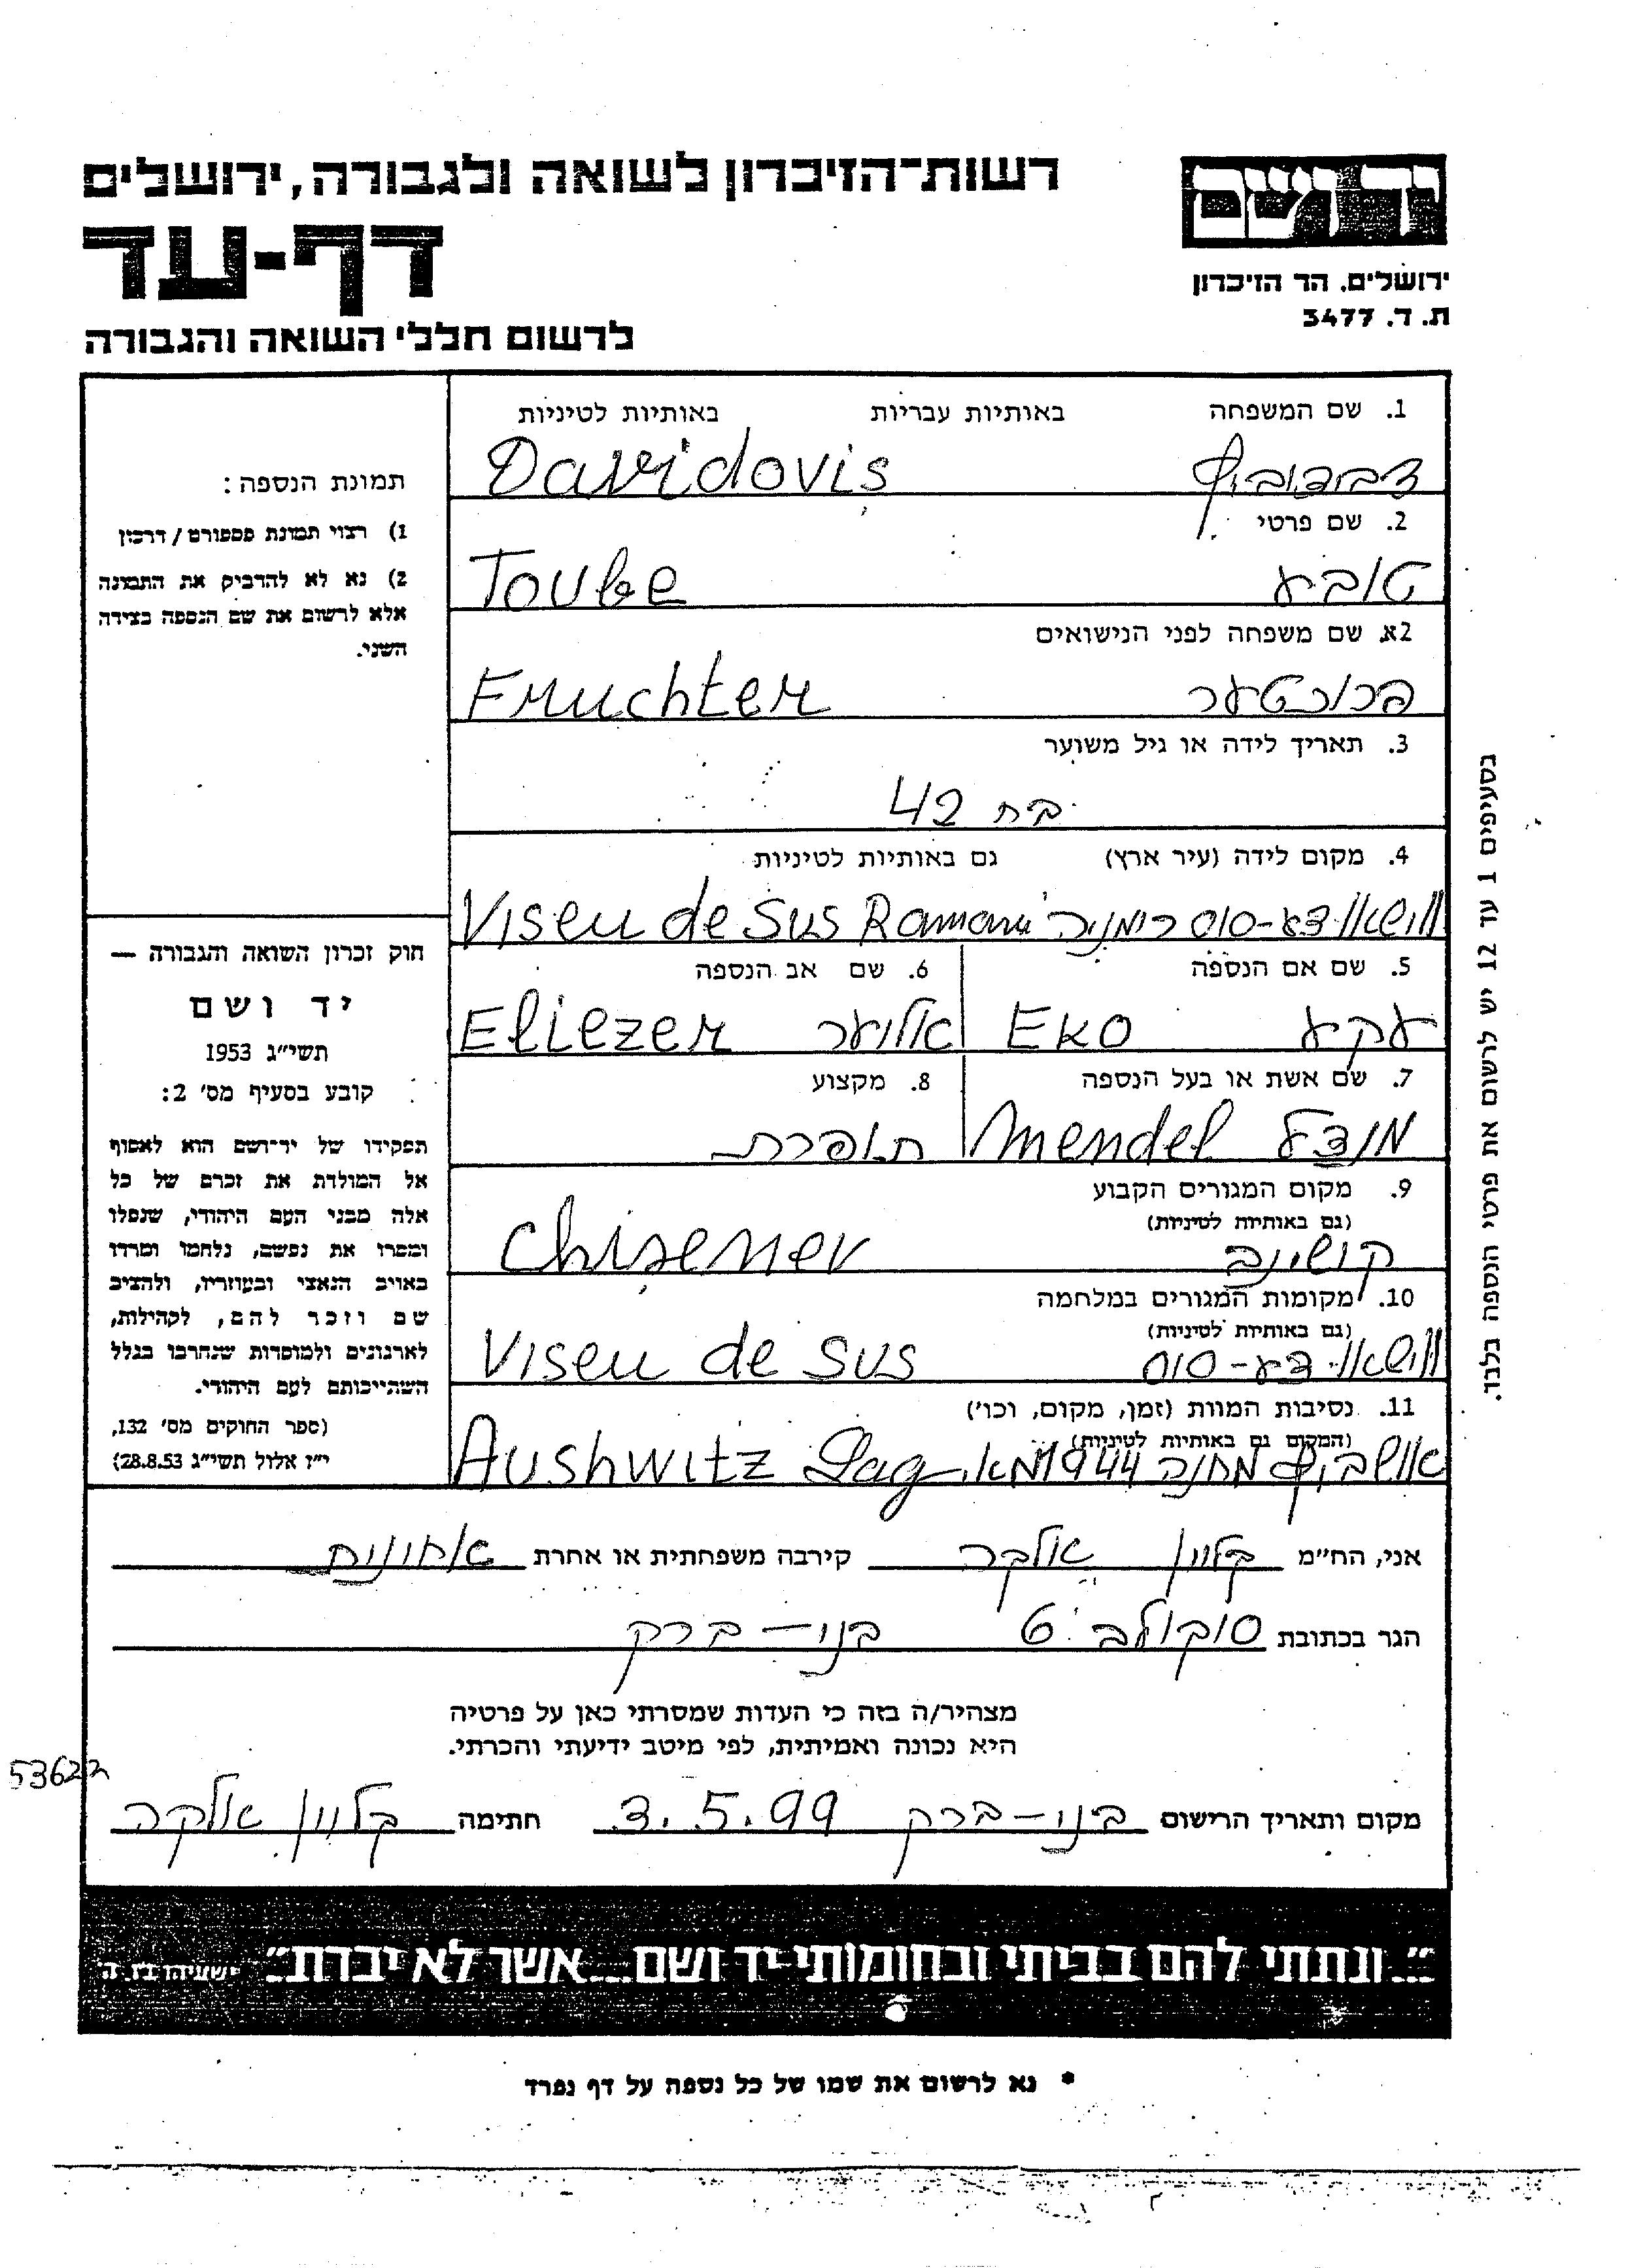 רשות־הזיכרון לשואה ולגבורה, ירושלים
דף-עד
לרשום חללי השואה והגבורה
יד ושם
ירושלים. הר הזיכרון
ת. ד. 3477
1. שם המשפחה באותיות עבריות באותיות לטיניות
דבידוביץ Davidovis
2. שם פרטי
טובע Toube
2א. שם משפחה לפני הנישואים
פרוכטער Fruchter
3. תאריך לידה או גיל משוער
בת 42
4. מקום לידה (עיר ארץ) גם באותיות לטיניות
ווישאו דא-סוס רומניה Viseu de Sus
5. שם אם הנספה 6. שם אב הנספה
עקא Eko Eliezer
7. שם אשת או בעל הנספה 8. מקצוע
מנדל Mendel תופרת
9. מקום המגורים הקבוע
(גם באותיות לטיניות)
קושינב Chisenev
10. מקומות המגורים במלחמה
(גם באותיות לטיניות)
ווישאו דע-סוס Viseu de Sus
11. נסיבות המוות (זמן, מקום, וכו')
(המקום גם באותיות לטיניות)
מחנה 1944 Aushwitz Lag
תמונת הנספה:
1) רצוי תמונת פספורט / דרכון
2) נא לא להדביק את התמונה
אלא לרשום את שם הנספה בצידה
השני.
חוק זכרון השואה והגבורה —
יד ושם
תשי״ג 1953
קובע בסעיף מס׳ 2:
תפקידו של יד־ושם הוא לאסוף
אל המולדת את זכרם של כל
אלה מבני העם היהודי, שנפלו
ומסרו את נפשם, נלחמו ומרדו
באויב הנאצי ובעוזריו, ולהציב
שם וזכר להם, לקהילות,
לארגונים ולמוסדות שנחרבו בגלל
השתייכותם לעם היהודי.
(ספר החוקים מס׳ 132,
י״ז אלול תשי״ג 28.8.53)
בסעיפים 1 עד 12 יש לרשום את פרטי הנספה בלבד.
אני, הח״מ קליין אלקה קירבה משפחתית או אחרת אחינית
הגר בכתובת סוקולוב 6 בני-ברק
מצהיר/ה בזה כי העדות שמסרתי כאן על פרטיה
היא נכונה ואמיתית, לפי מיטב ידיעתי והכרתי.
מקום ותאריך הרישום בני-ברק 3.5.99 חתימה קליין אלקה
„...ונתתי להם בביתי ובחומותי יד ושם...אשר לא יכרת״ ישעיהו נו, ה'
* נא לרשום את שמו של כל נספה על דף נפרד